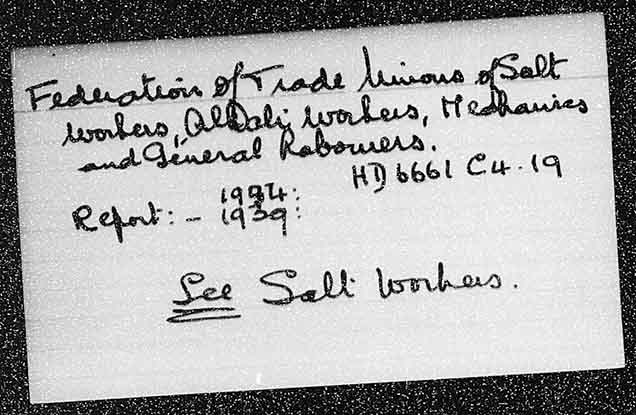 Federation of Trade Unions of Salt
Workers, Alkali Workers, Mechanics
and General Labourers.
HD 6661 C4.19
Report: - 1934:
1939:
See Salt Workers.